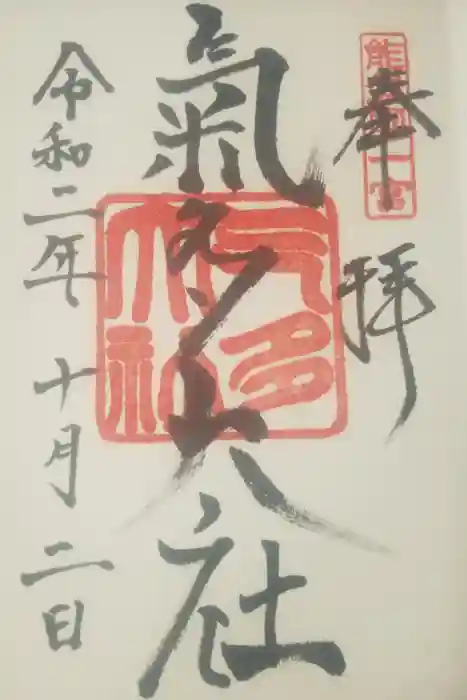 奉拝
能登國一宮
氣多大社
气多
大社
令和二年十月二日